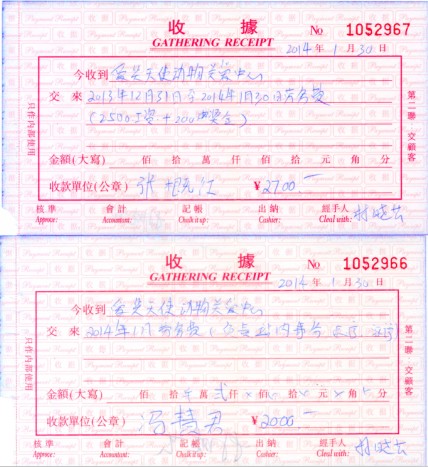 收據
GATHERING RECEIPT
No 1052967
2014年1月30日
今收到
愛是天使动物关爱中心
交來
2013年12月31日至2014年1月30日劳务费
(2500工资+200奖金)
金額(大寫) 佰 拾 萬 仟 佰 拾 元 角 分
收款單位(公章) 张 红 ¥2700
核準 會計 記帳 出納 經手人
Approve: Accountant: Chalk it up: Cashier: Cleal with:
只作内部使用
第二聯 交顧客
收據
GATHERING RECEIPT
No 1052966
2014年1月30日
今收到
愛是天使动物关爱中心
交來
2014年1月劳务费
金額(大寫) 佰 拾 萬 贰仟 佰 拾 元 角 分
收款單位(公章) 冯慧君 ¥2000
核準 會計 記帳 出納 經手人
Approve: Accountant: Chalk it up: Cashier: Cleal with:
只作内部使用
第二聯 交顧客